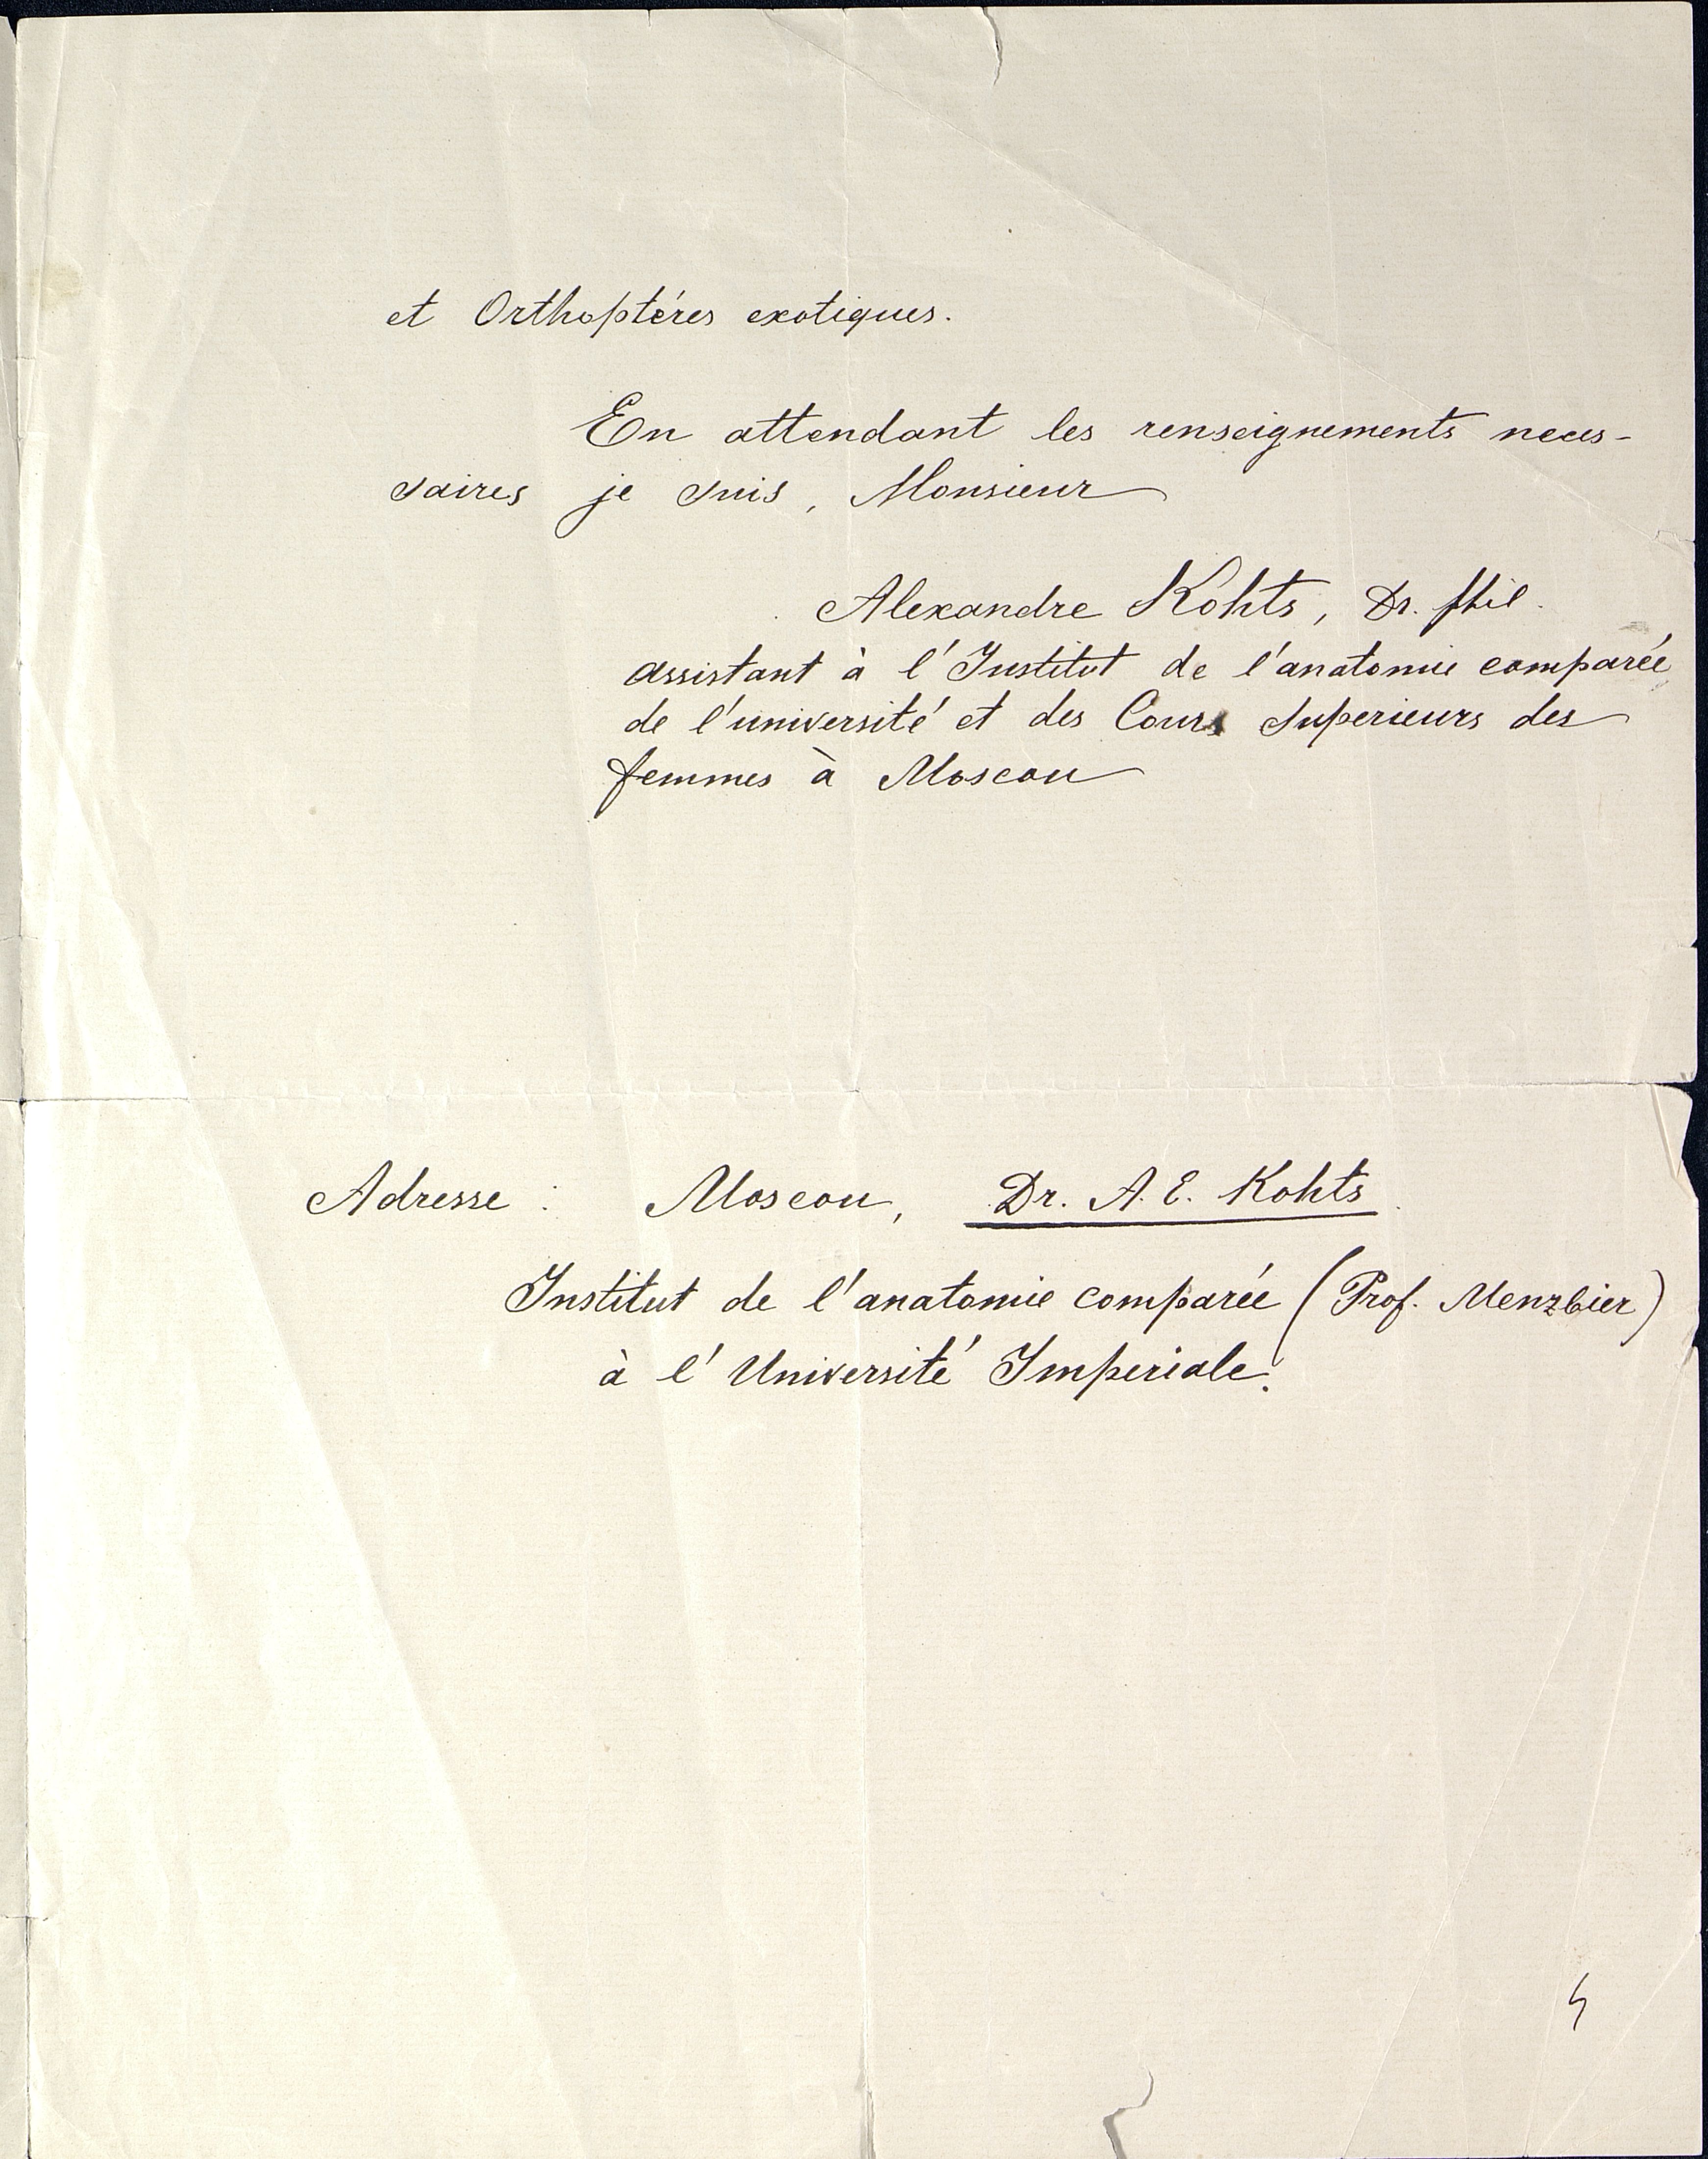 et Orthoptéres exotiques.
En attendant les renseignements neces-
saires je suis, Monsieur
Alexandre Kohts, Dr. phil.
assistant à l'Institut de l'anatomie comparée
de l'université et des Cours Superieurs des
femmes à Moscou
Adresse : Moscou, Dr. A. E. Kohts.
Institut de l'anatomie comparée (Prof. Menzbier)
à l'Université Imperiale.